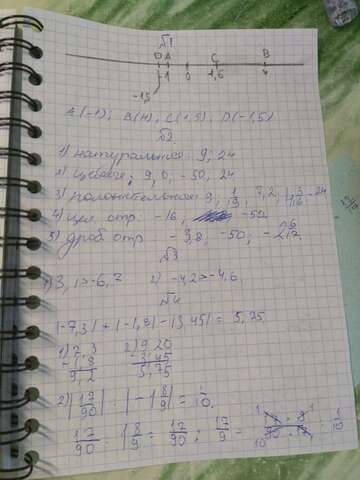 №1
D A C B
-1 0 1,5 4
-1,5
A(-1); B(4); C(1,5); D(-1,5)
№2
1) натуральные: 9; 24
2) целые: 9, 0, -50, 24
3) положительные 9; 1/19; 7,2; 1 3/16 24
4) цел отр. -16; -50
5) дроб отр -3,8; -50; -2 6/17
№3
1) 3,1>-6,7 2) -4,2>-4,6
№4
|-7,3| + |-1,9| - |3,45| = 5,75
1) 7,3 2) 9,20
-1,9 3,45
9,2 5,75
2) |17/90| : |-1 8/9| = 1/10.
17/90 : 1 8/9 = 17/90 : 17/9 = 1/10